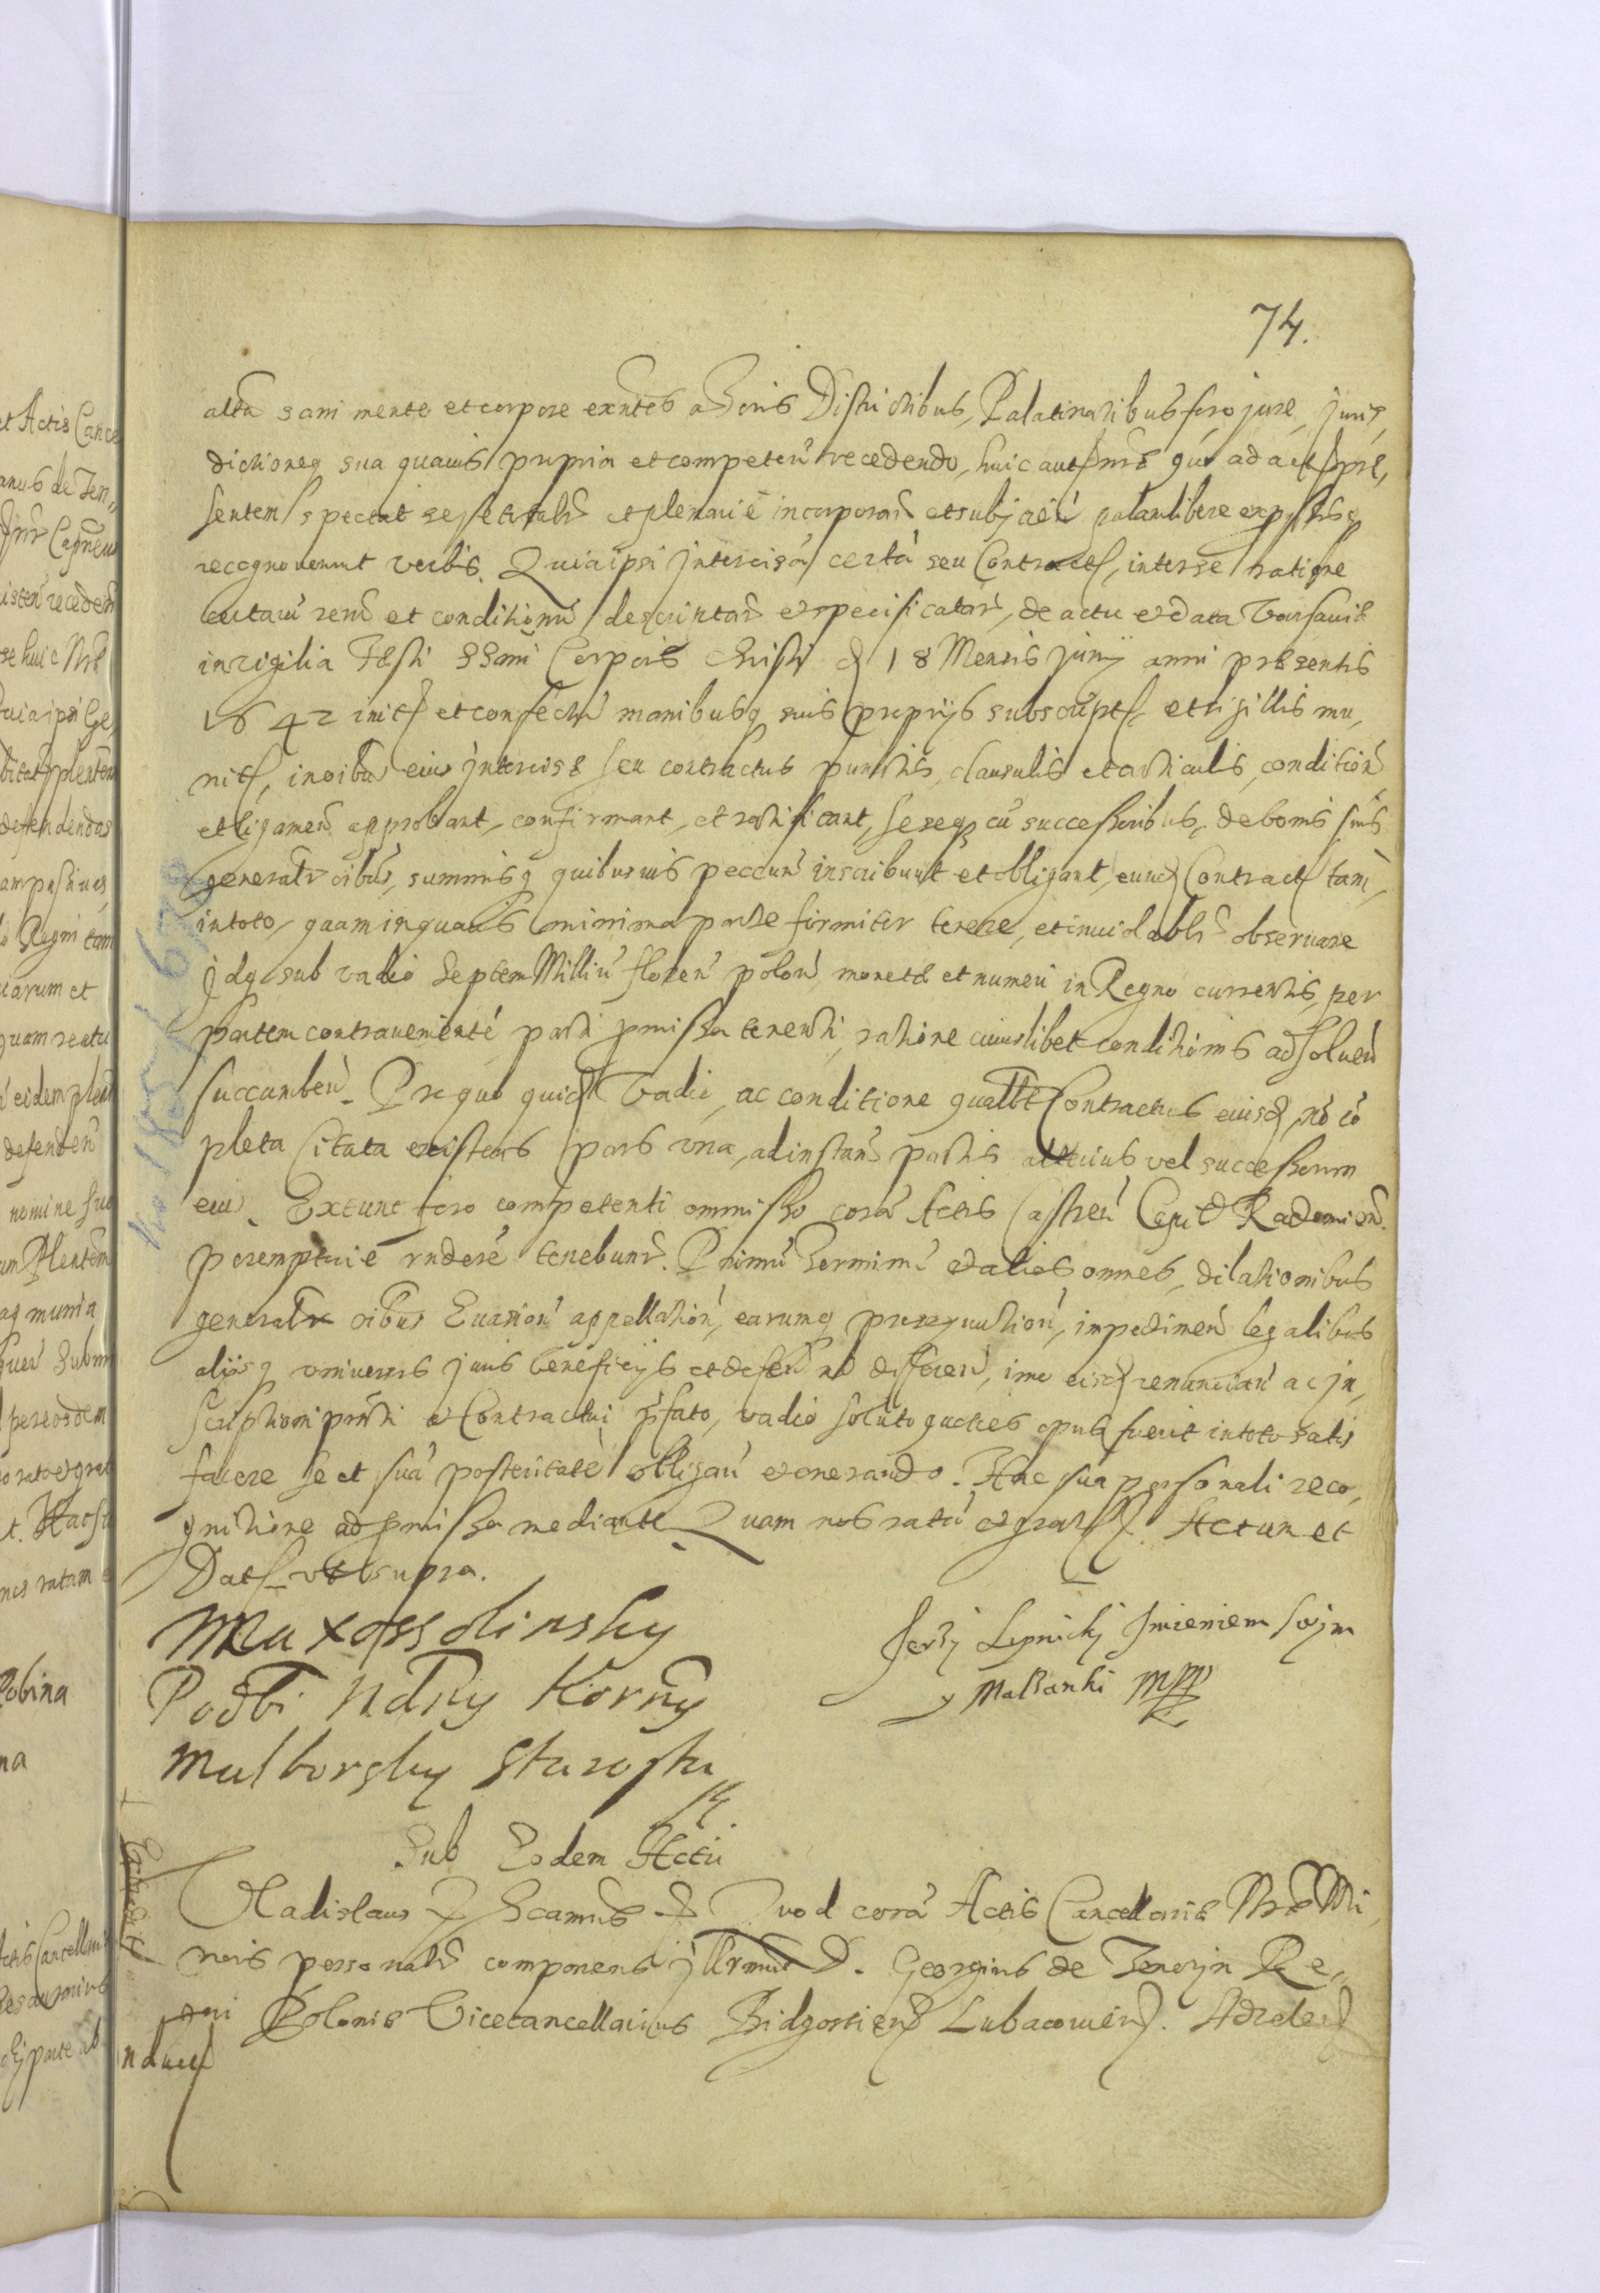 74.
altera sani mente et corpore exntes a Terris Districtibus, Palatinatibus foro jure, juris,
dictioneq sua quavis propria et competen recedendo, huic aut nrae quo ad act prae,
sentem spectat sese et totalr et plenarie incorporan et subjicien palam libere expresse
recognoverunt verbis. Quia ipsi Intercisam certam seu Contract, inter se ratione
certaru rerum et conditionu descriptar et specificatar, de actu et data Varsaviae
in vigilia Festi SSami Corporis Christi d 18 Mensis Junij anni praesentis
1642 init et confect manibusq suis proprijs subscript, et sigillis mu,
nit, in oibus eius Intercisae seu contractus punctis, clausulis et articulis, condition
et ligamen approbant, confirmant, et ratificant, seseq cu successoribus, de bonis suis
generalr oibus, summisq quibusvis peccun inscribunt et obligant, eund Contract tam,
in toto, quam in quavis minima parte firmiter tenere, et inviolablr observare
Idq sub vadio Septem Milliu floren polon, moneta et numeri in Regno currentis, per
partem contravenientē parti praemissa tenenti, ratione cuiuslibet conditionis adsolven
succumben. Pro quo quid Vadio, ac conditione qualibet Contractus eiusd no co
pleta Citata existens pars una, ad instan partis alterius vel successorum
eius. Extunc foro competenti ommisso cora Actis Castren Capit Radomien.
peremptorie rndere tenebunr. Primu Terminu et alios omnes, dilationibus
generalr oibus Evasion appellation, earumq prosequution, impedimen legalibus
alijsq universis juris beneficijs et defen no differen, imo eisd renuncian ac In,
scriptioni prnti et Contractui pfato, vadio soluto quoties opus fuerit in toto satis
facere se et sua posteritate obligan et onerando. Hac sua personali reco,
gnitione ad praemissa mediante Quam nos ratu et grat. Actum et
Dat ut supra.
Max Ossolinsky
Podbi Ndny Korny
Malborsky Starosta
Jerzy Lipnicky Imieniem swym
y Malzanki mpp
Sub Eodem Actu
Vladislaus Scamus Quod cora Actis Cancellariae Nrae Mi,
noris personalr componens Illrmus D. Georgius de Tenczyn Re,,
gni Poloniae Vicecancellarius Bidgostien Lubacovien.